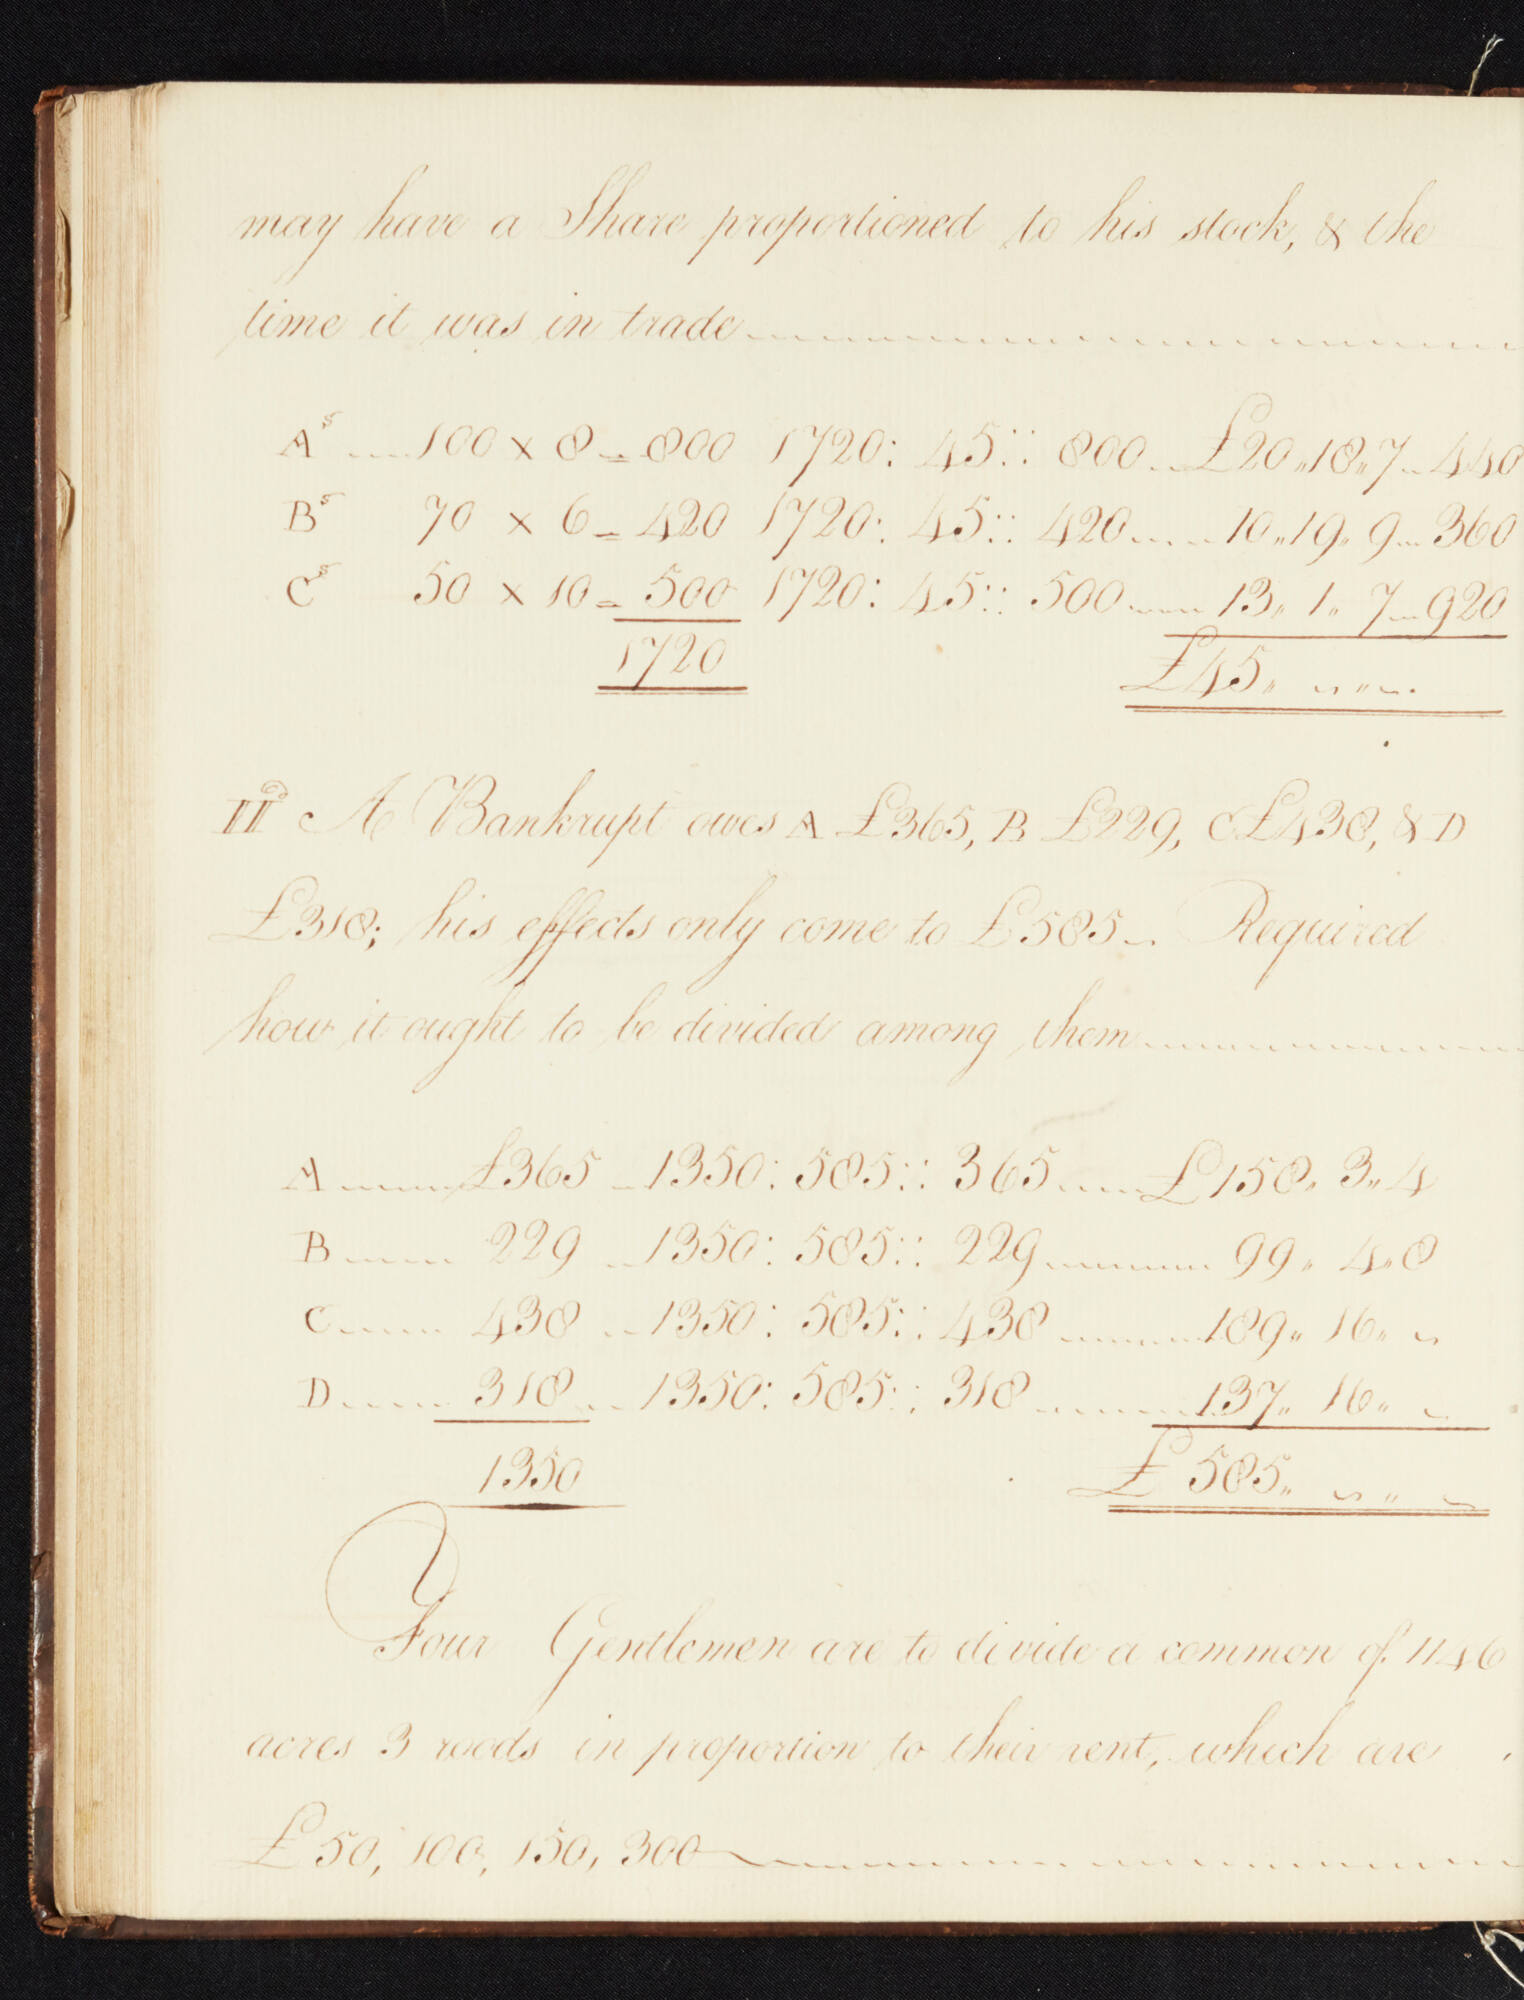 may have a Share proportioned to his stock, & the
time it was in trade
As 100 x 8 = 800 1720 : 45 :: 800 £20 „ 18 „ 7 440
Bs 70 x 6 = 420 1720 : 45 :: 420 10 „ 19 „ 9 360
Cs 50 x 10 = 500 1720 : 45 :: 500 13 „ 1 „ 7 920
1720 £45 „ ~ „ ~
IId A Bankrupt owes A £365, B £229, C £438, & D
£318; his effects only come to £585. Required
how it ought to be divided among them
A £365 1350 : 585 :: 365 £158 „ 3 „ 4
B 229 1350 : 585 :: 229 99 „ 4 „ 8
C 438 1350 : 585 :: 438 189 „ 16 „ ~
D 318 1350 : 585 :: 318 137 „ 16 „ ~
1350 £585 „ ~ „ ~
Four Gentlemen are to divide a common of 1146
acres 3 roods in proportion to their rent, which are
£50, 100, 150, 300